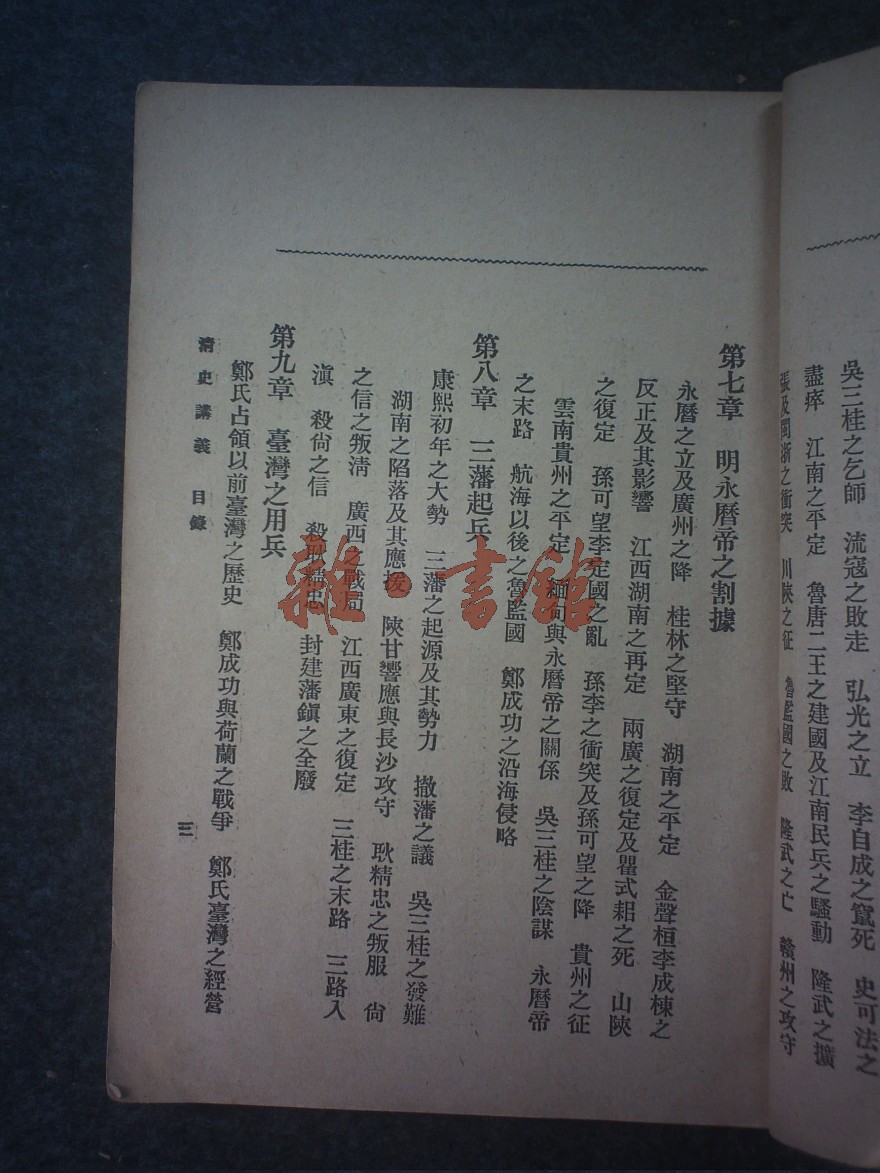 吳三桂之乞師　流寇之敗走　弘光之立　李自成之竄死　史可法之
盡瘁　江南之平定　魯唐二王之建國及江南民兵之騷動　隆武之擴
張及閩浙之衝突　川陝之征　魯監國之敗　隆武之亡　贛州之攻守
第七章　明永曆帝之割據
永曆之立及廣州之降　桂林之堅守　湖南之平定　金聲桓李成棟之
反正及其影響　江西湖南之再定　兩廣之復定及瞿式耜之死　山陝
之復定　孫可望李定國之亂　孫李之衝突及孫可望之降　貴州之征
雲南貴州之平定　緬甸與永曆帝之關係　吳三桂之陰謀　永曆帝
之末路　航海以後之魯監國　鄭成功之沿海侵略
第八章　三藩起兵
康熙初年之大勢　三藩之起源及其勢力　撤藩之議　吳三桂之發難
湖南之陷落及其應援　陝甘響應與長沙攻守　耿精忠之叛服　尙
之信之叛淸　廣西之戰局　江西廣東之復定　三桂之末路　三路入
滇　殺尙之信　殺耿精忠　封建藩鎭之全廢
第九章　臺灣之用兵
鄭氏占領以前臺灣之歷史　鄭成功與荷蘭之戰爭　鄭氏臺灣之經營
淸史講義　目錄
三
雜·書館